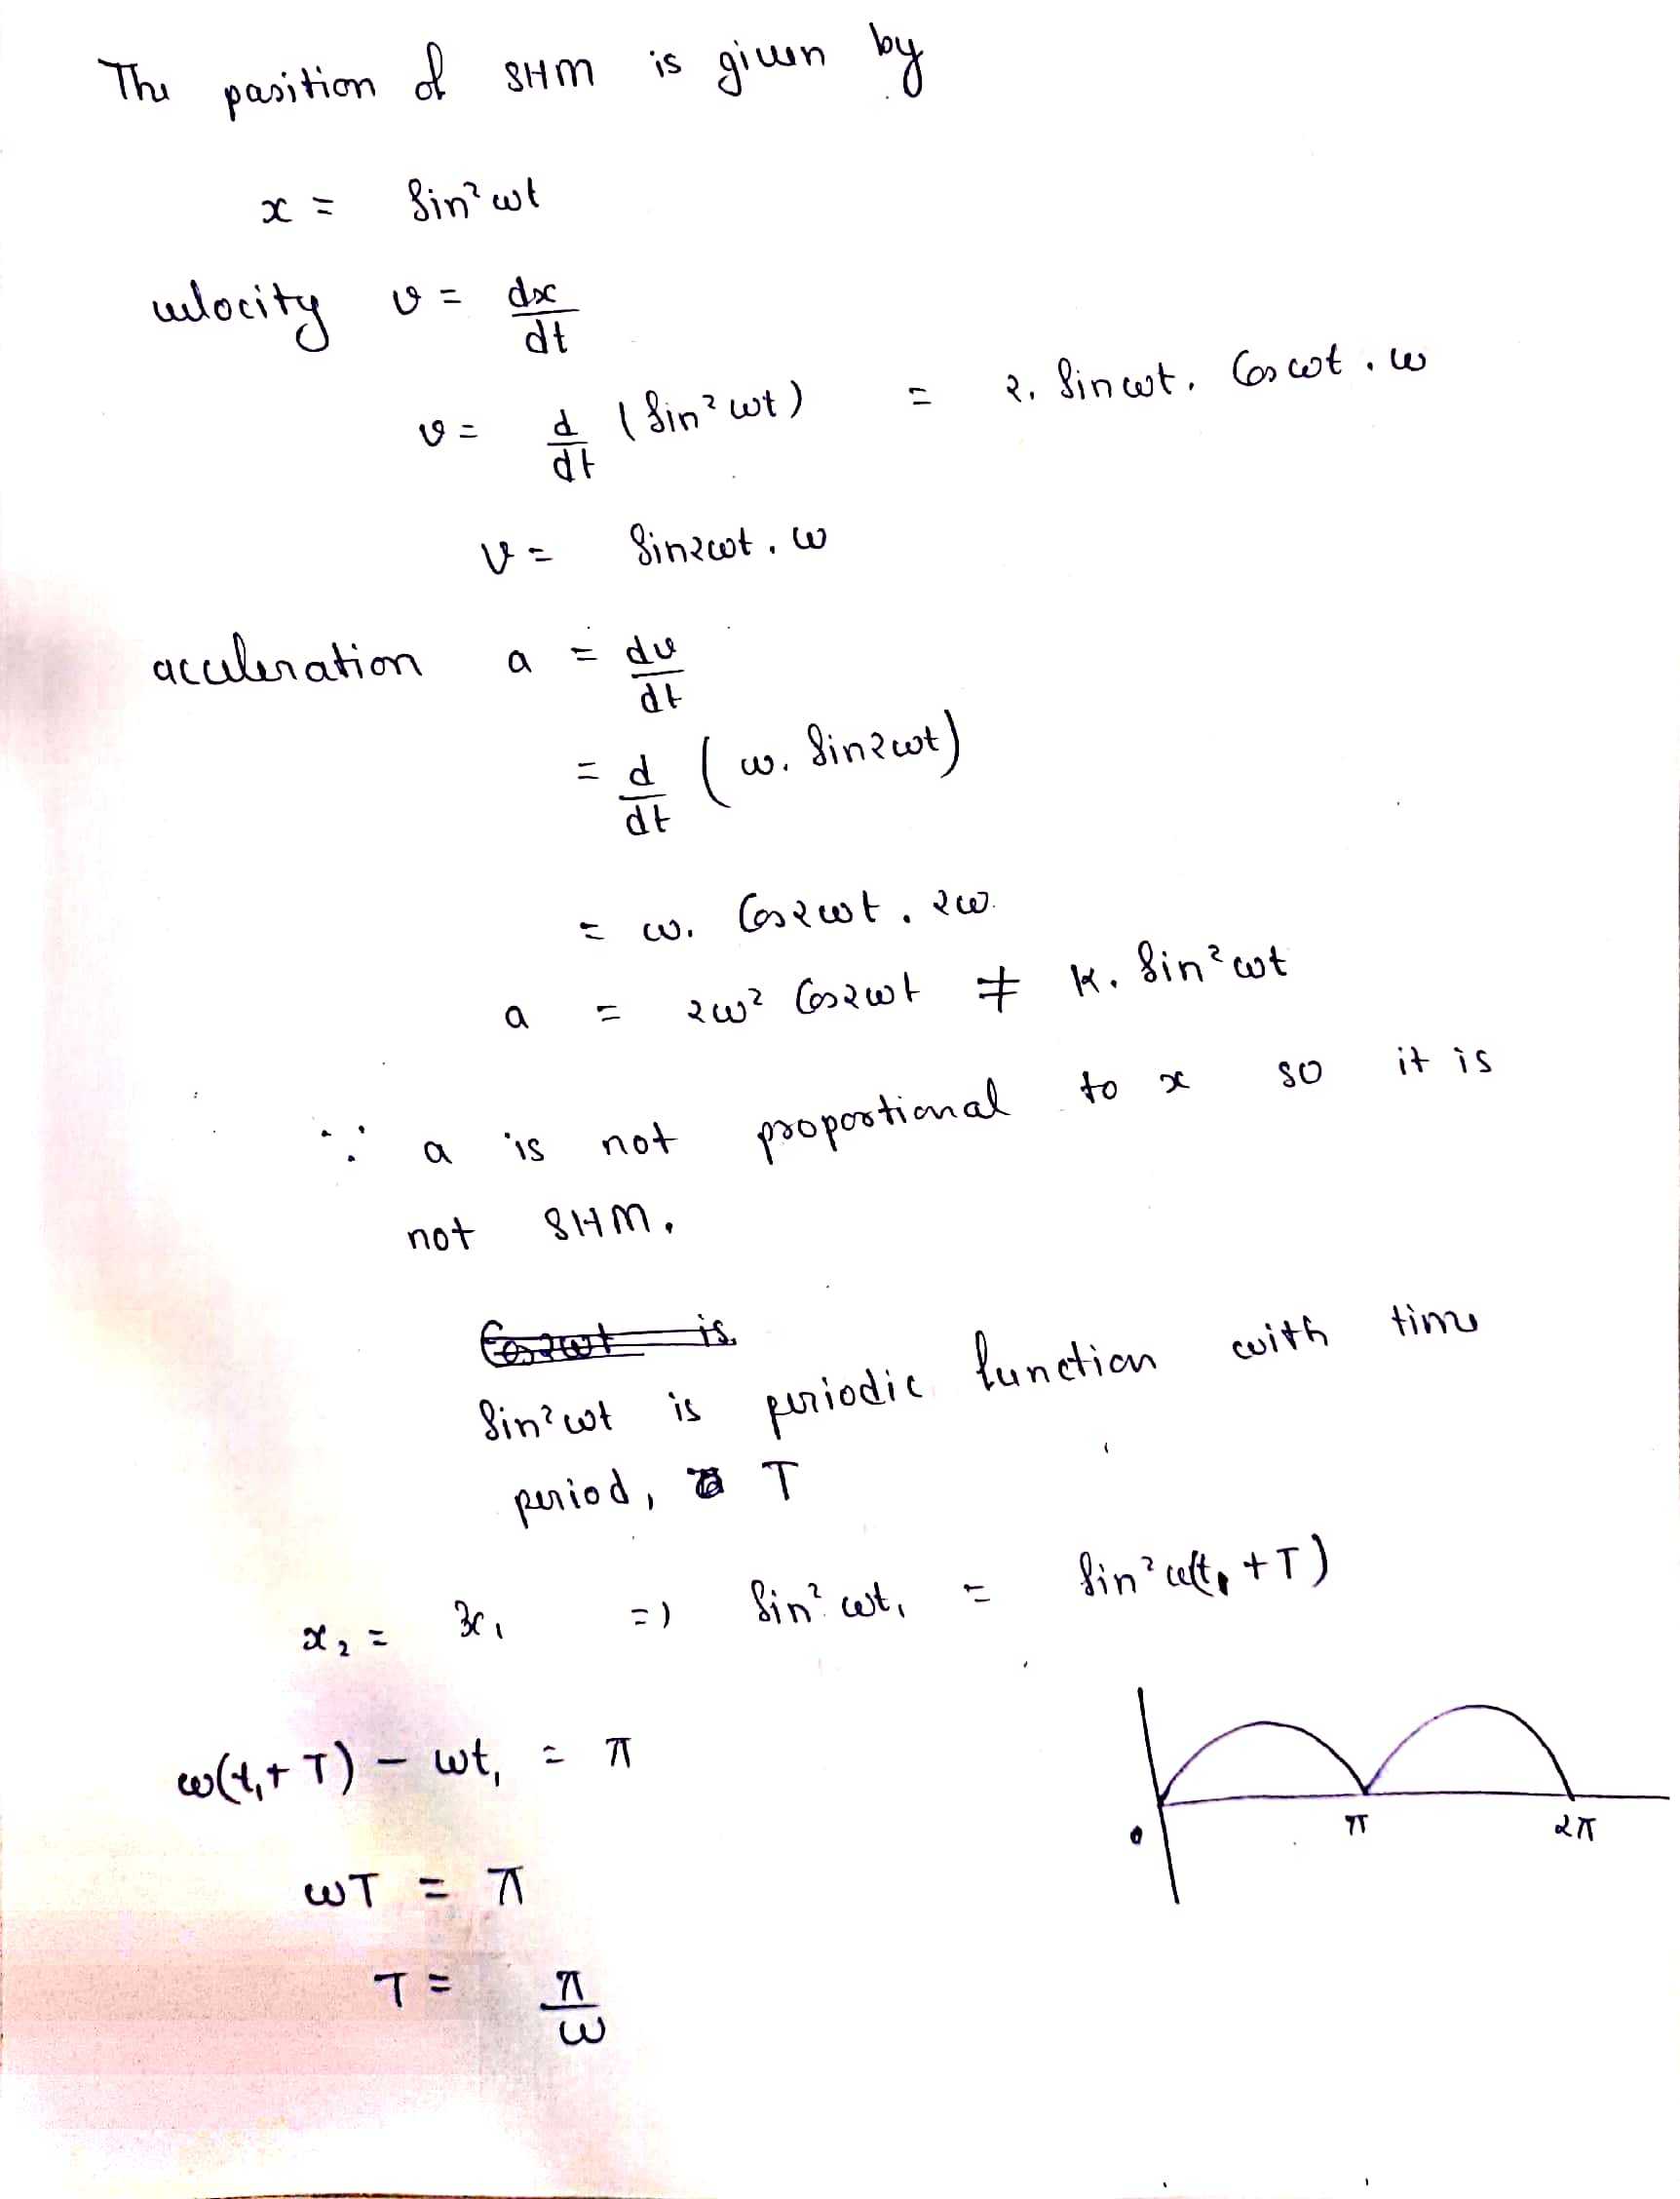 The position of SHM is given by
x = Sin²ωt
velocity v = dx/dt
v = d/dt (Sin²ωt) = 2. Sinωt. Cosωt . ω
v = Sin2ωt . ω
acceleration a = dv/dt
= d/dt (ω. Sin2ωt)
= ω. Cos2ωt . 2ω.
a = 2ω² Cos2ωt ≠ K. Sin²ωt
∵ a is not proportional to x so it is
not SHM.
Sin²ωt is periodic function with time
period, T
x₂ = x₁ => Sin²ωt₁ = Sin²ω(t₁ + T)
ω(t₁+ T) – ωt₁ = π
0 π 2π
ωT = π
T = π/ω